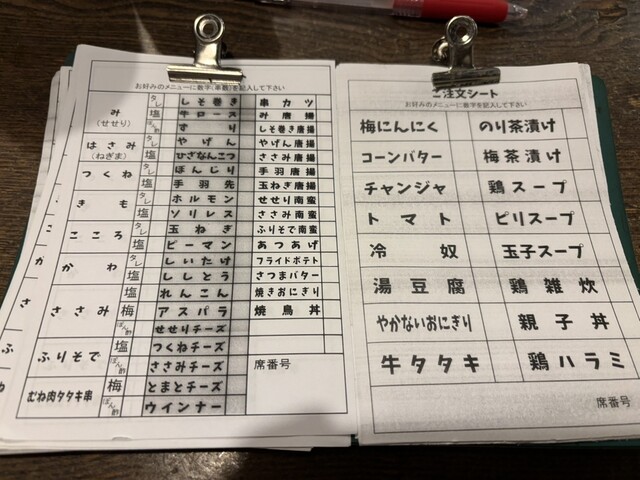 お好みのメニューに数字(串数)を記入して下さい
み
(せせり)
タレ
塩
ぽん酢
はさみ
(ねぎま)
タレ
塩
つくね
タレ
塩
きも
タレ
塩
こころ
タレ
塩
かわ
タレ
塩
ささみ
梅
ふりそで
塩
ぽん酢
むね肉タタキ串
梅
ぽん酢
しそ巻き
牛ロース
すり
やげん
ひざなんこつ
ぼんじり
手羽先
ホルモン
ソリレス
玉ねぎ
ピーマン
しいたけ
ししとう
れんこん
アスパラ
せせりチーズ
つくねチーズ
ささみチーズ
とまとチーズ
ウインナー
串カツ
み唐揚
しそ巻き唐揚
やげん唐揚
ささみ唐揚
手羽唐揚
玉ねぎ唐揚
せせり南蛮
ささみ南蛮
ふりそで南蛮
あつあげ
フライドポテト
さつまバター
焼きおにぎり
焼鳥丼
席番号
ご注文シート
お好みのメニューに数字を記入して下さい
梅にんにく のり茶漬け
コーンバター 梅茶漬け
チャンジャ 鶏スープ
トマト ピリスープ
冷奴 玉子スープ
湯豆腐 鶏雑炊
やかないおにぎり 親子丼
牛タタキ 鶏ハラミ
席番号